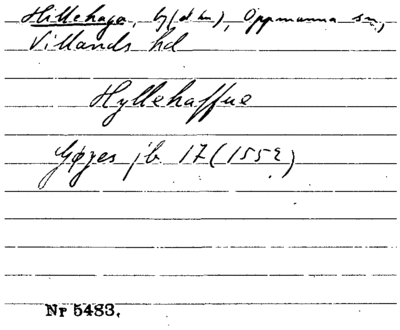 Hillehage, by (et hn), Oppmanna sn,
Villands hd
Hyllehaffue
Gøyes jb 17 (1552)
Nr 5483.